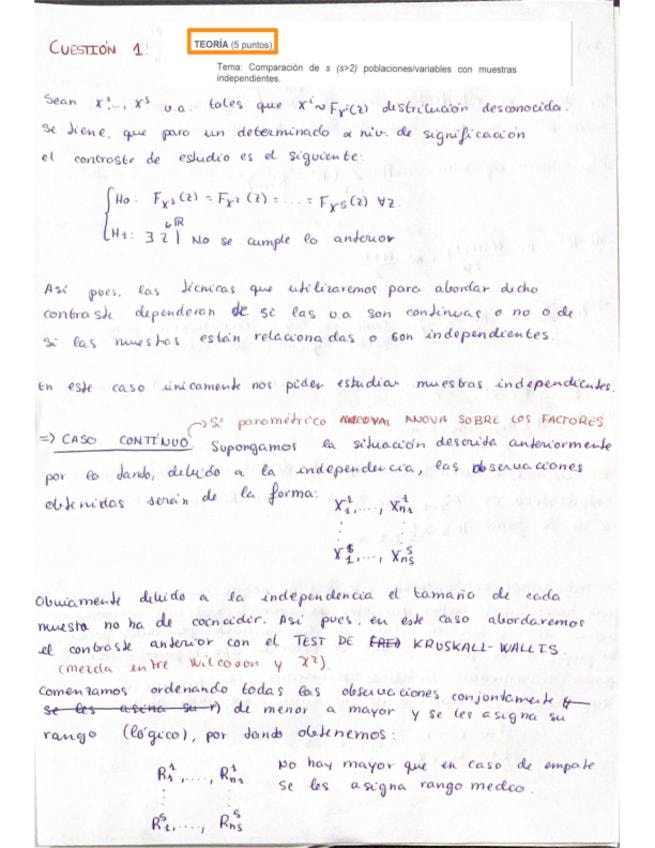 CUESTIÓN 1:
TEORÍA (5 puntos)
Tema: Comparación de s (s>2) poblaciones/variables con muestras
independientes.
Sean X¹,..., Xˢ v.a. tales que Xⁱ ~ F_Xⁱ(z) distribución desconocida.
Se tiene, que para un determinado α niv. de significación
el contraste de estudio es el siguiente:
H₀: F_X¹(z) = F_X²(z) = ... = F_Xˢ(z) ∀z.
H₁: ∃ z ∈ ℝ | No se cumple lo anterior
Así pues, las técnicas que utilizaremos para abordar dicho
contraste dependeran de si las v.a son continuas o no o de
si las muestras están relacionadas o son independientes.
En este caso únicamente nos piden estudiar muestras independientes.
→ Si paramétrico ANOVA SOBRE LOS FACTORES.
=> CASO CONTÍNUO. Supongamos la situación descrita anteriormente
por lo tando, debido a la independencia, las observaciones
obtenidas serán de la forma:
X¹₁,..., X¹n₁
⋮ ⋮
Xˢ₁,..., Xˢnₛ
Obviamente debido a la independencia el tamaño de cada
muestra no ha de cocncidir. Así pues, en este caso abordaremos
el contraste anterior con el TEST DE KRUSKALL-WALLIS.
(mezcla entre Wilcoxon y χ²).
Comenzamos ordenando todas las observaciones conjontamente
se les asigna su r) de menor a mayor y se les asigna su
rango (lógico), por tando obtenemos:
R¹₁,..., R¹n₁ No hay mayor que en caso de empate
⋮ ⋮ se les asigna rango medio.
Rˢ₁,..., Rˢnₛ